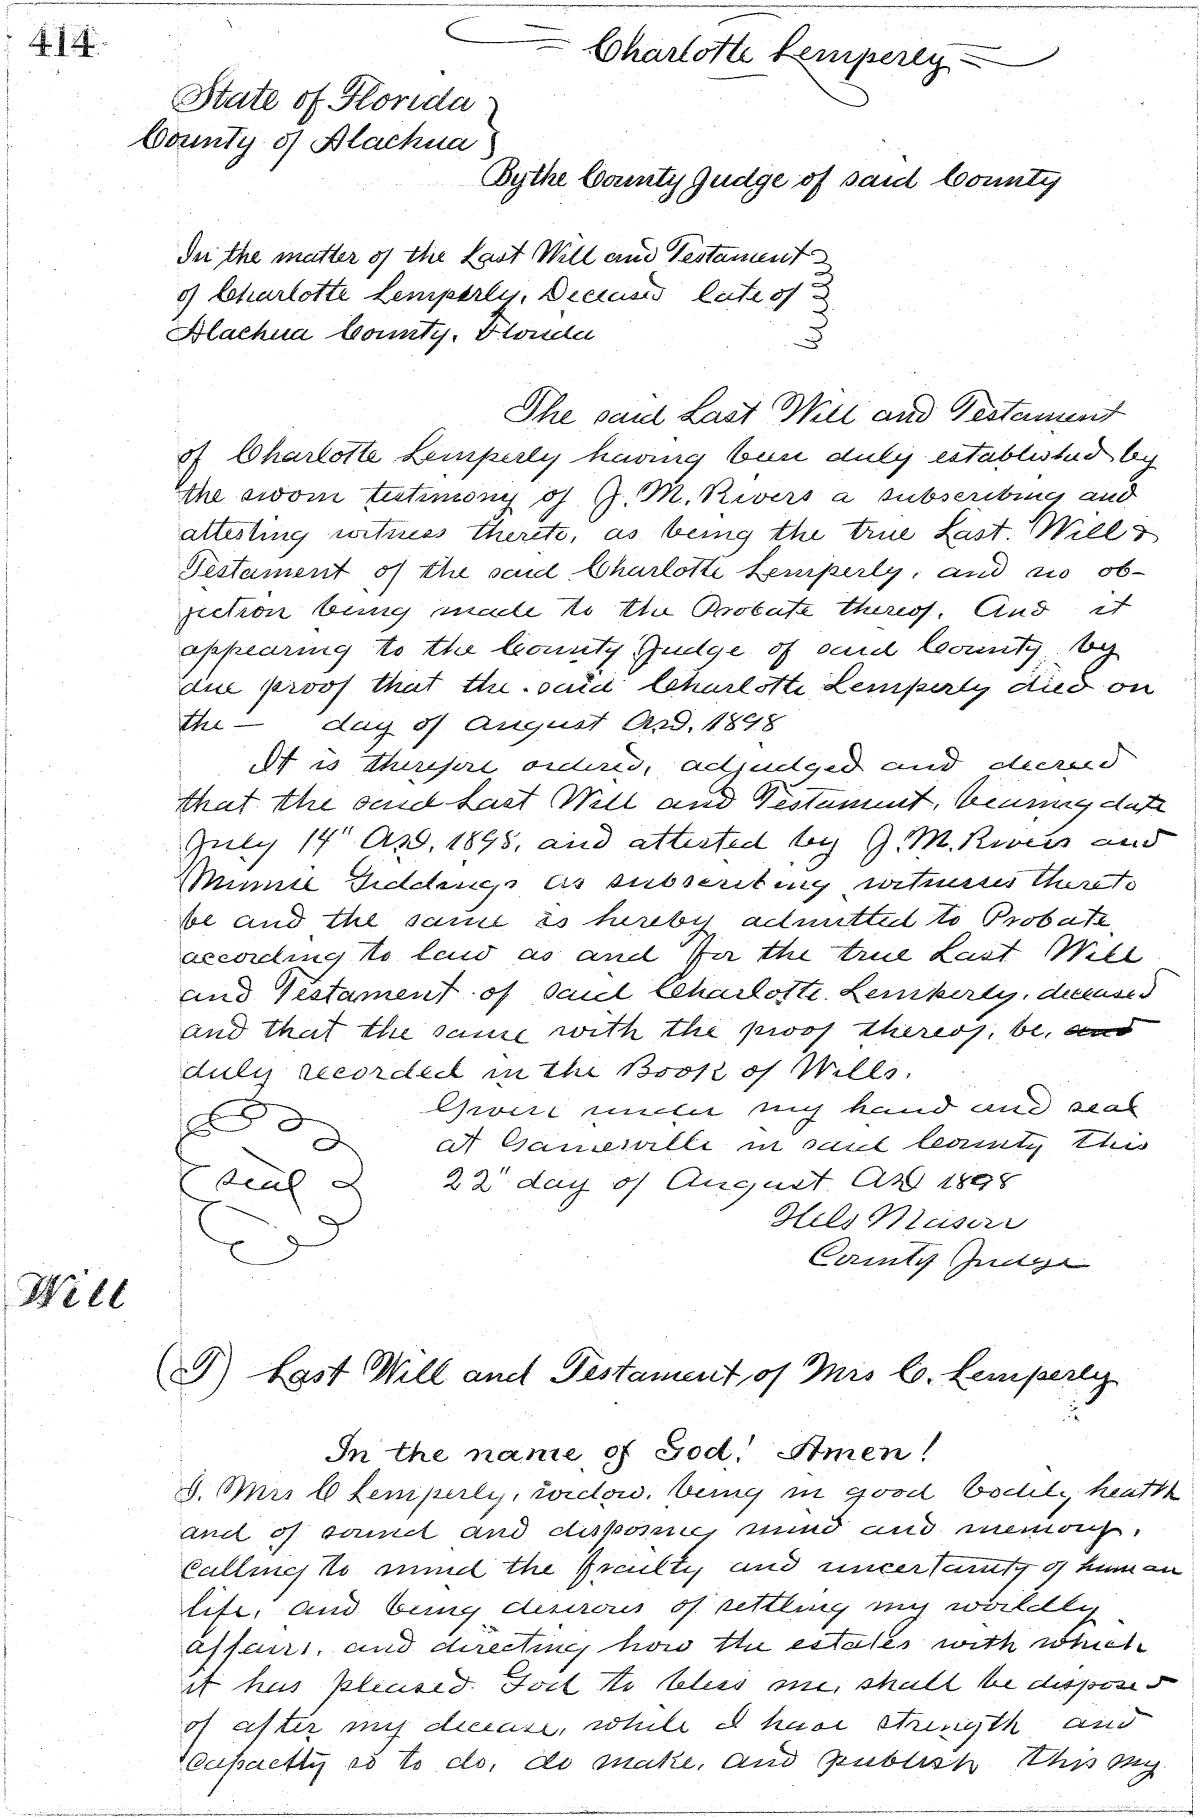 414
Charlotte Lemperly
State of Florida
County of Alachua
By the County Judge of said County
In the matter of the Last Will and Testament
of Charlotte Lemperly, Deceased late of
Alachua County, Florida
The said Last Will and Testament
of Charlotte Lemperly having been duly established by
the sworn testimony of J. M. Rivers a subscribing and
attesting witness thereto, as being the true Last Will &
Testament of the said Charlotte Lemperly, and no ob-
jection being made to the Probate thereof. And it
appearing to the County Judge of said County by
due proof that the said Charlotte Lemperly died on
the — day of August A.D. 1898
It is therefore ordered, adjudged and decreed
that the said Last Will and Testament, bearing date
July 14" A.D. 1898, and attested by J. M. Rivers and
Minnie Giddings as subscribing witnesses thereto
be and the same is hereby admitted to Probate
according to law as and for the true Last Will
and Testament of said Charlotte Lemperly, deceased
and that the same with the proof thereof, be, and
duly recorded in the Book of Wills.
Given under my hand and seal
at Gainesville in said County this
22" day of August A.D 1898
seal
Mason
County Judge
Will
(T) Last Will and Testament of Mrs C. Lemperly
In the name of God! Amen!
I. Mrs C Lemperly, widow, being in good bodily health
and of sound and disposing mind and memory,
calling to mind the frailty and uncertainty of human
life, and being desirous of settling my worldly
affairs, and directing how the estates with which
it has pleased God to bless me, shall be disposed
of after my decease, while I have strength and
capacity so to do, do make, and publish this my